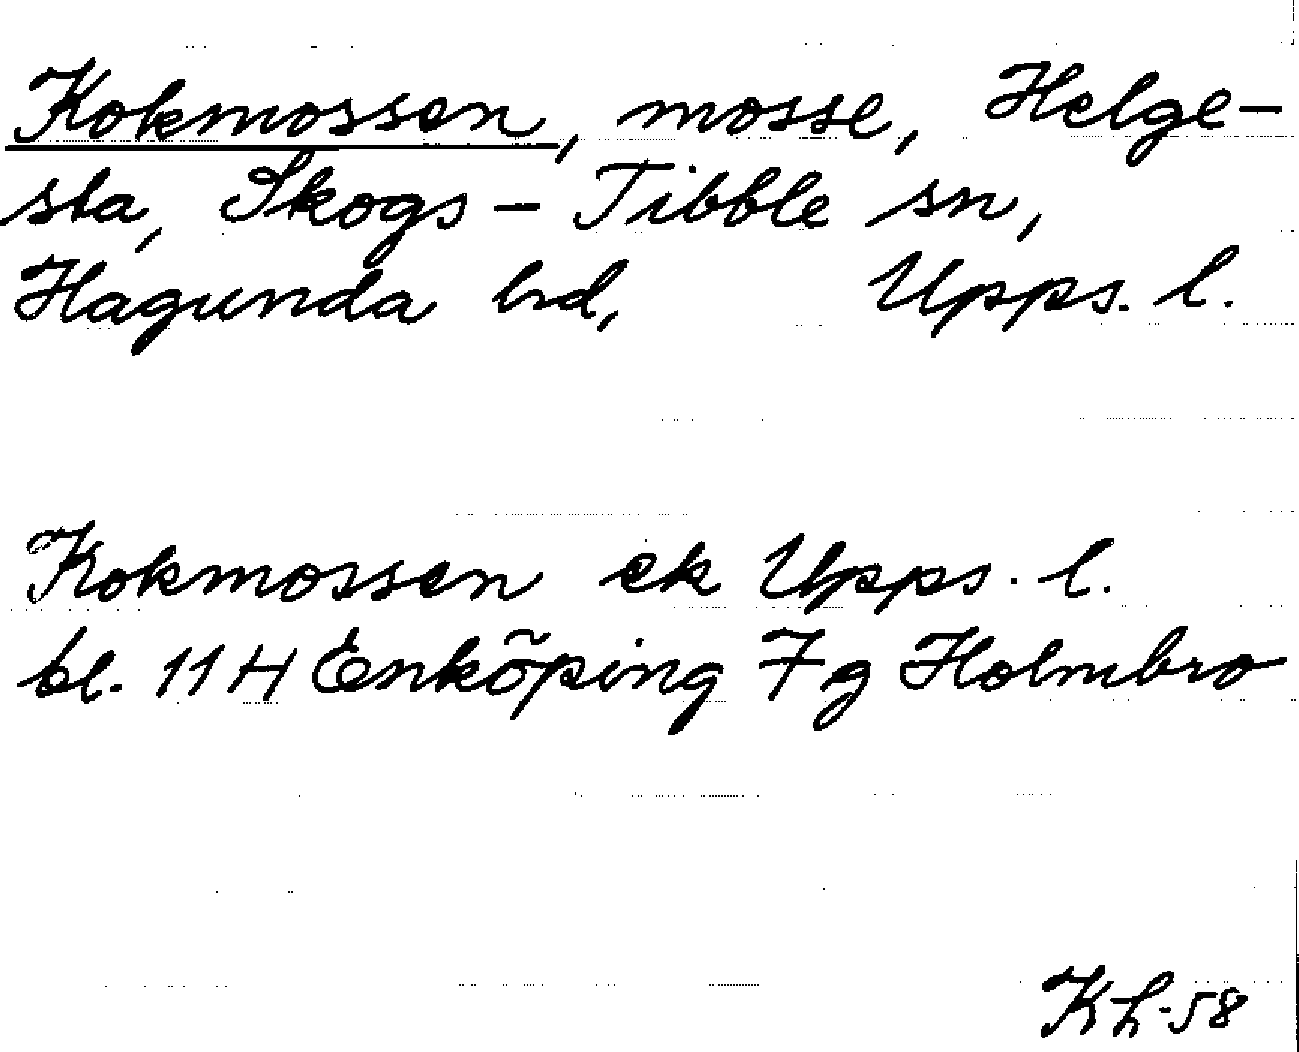 Kokmossen, mosse, Helge-
sta, Skogs-Tibble sn,
Hagunda hd, Upps. l.
Kokmossen ek Upps. l.
bl. 11 H Enköping 7 g Holmbro
Kh-58